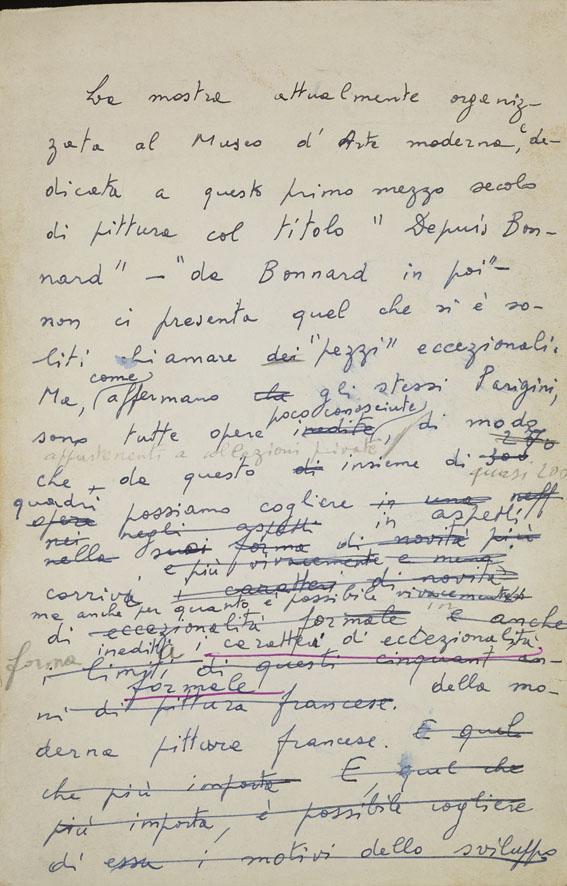 La mostra attualmente organiz-
zata al Museo d'Arte moderna, de-
dicata a questo primo mezzo secolo
di pittura col titolo "Depuis Bon-
nard" – "da Bonnard in poi" –
non ci presenta quel che si è so-
liti chiamare dei "pezzi" eccezionali.
come
Ma, affermano che gli stessi Parigini,
poco conosciute
sono tutte opere inedite, di modo
appartenenti a collezioni private
che, da questo di insieme di 300
quasi 200
quadri
opera possiamo cogliere in una
nei negli aspetti in aspetti
nella suoi forma di novità più
e più vivacemente e meno
corrivi caratteri di novità
ma anche per quanto è possibile vivacemente
di eccezionalità formale e anche
inediti i caratteri d'eccezionalità
forma
i limiti di questi cinquant'an-
formale
ni di pittura francese. della mo-
derna pittura francese. E quel
che più importa E, quel che
più importa, è possibile cogliere
di essa i motivi dello sviluppo